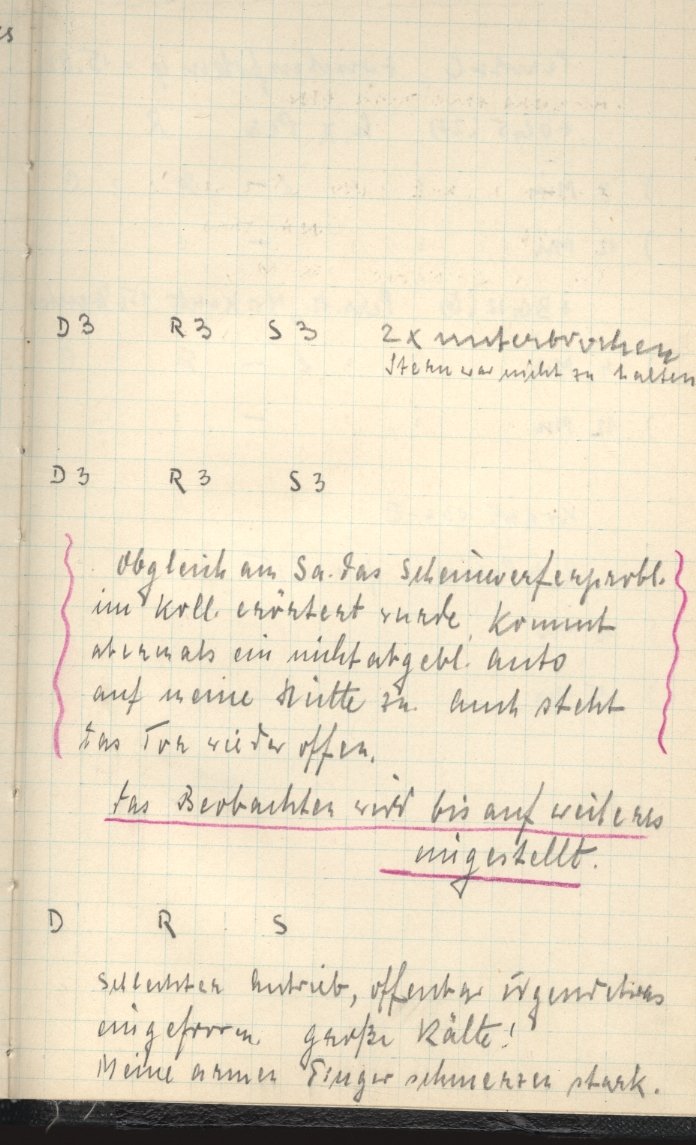 D3 R3 S3 2x unterbrochen
Stern war nicht zu halten
D3 R3 S3
Obgleich am Sa. das Scheinwerferprobl.
im Koll. erörtert wurde, kommt
abermals ein nicht abgebl. Auto
auf meine Hütte zu. Auch steht
das Tor wieder offen.
Das Beobachten wird bis auf weiteres
eingestellt.
D R S
Schlechter Antrieb, offenbar irgendetwas
eingefroren. Große Kälte!
Meine armen Finger schmerzen stark.